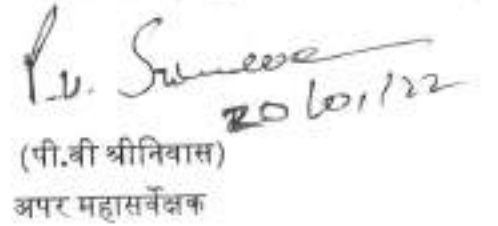 P.V. Sreenivas
20/01/22
(पी.वी श्रीनिवास)
अपर महासर्वेक्षक